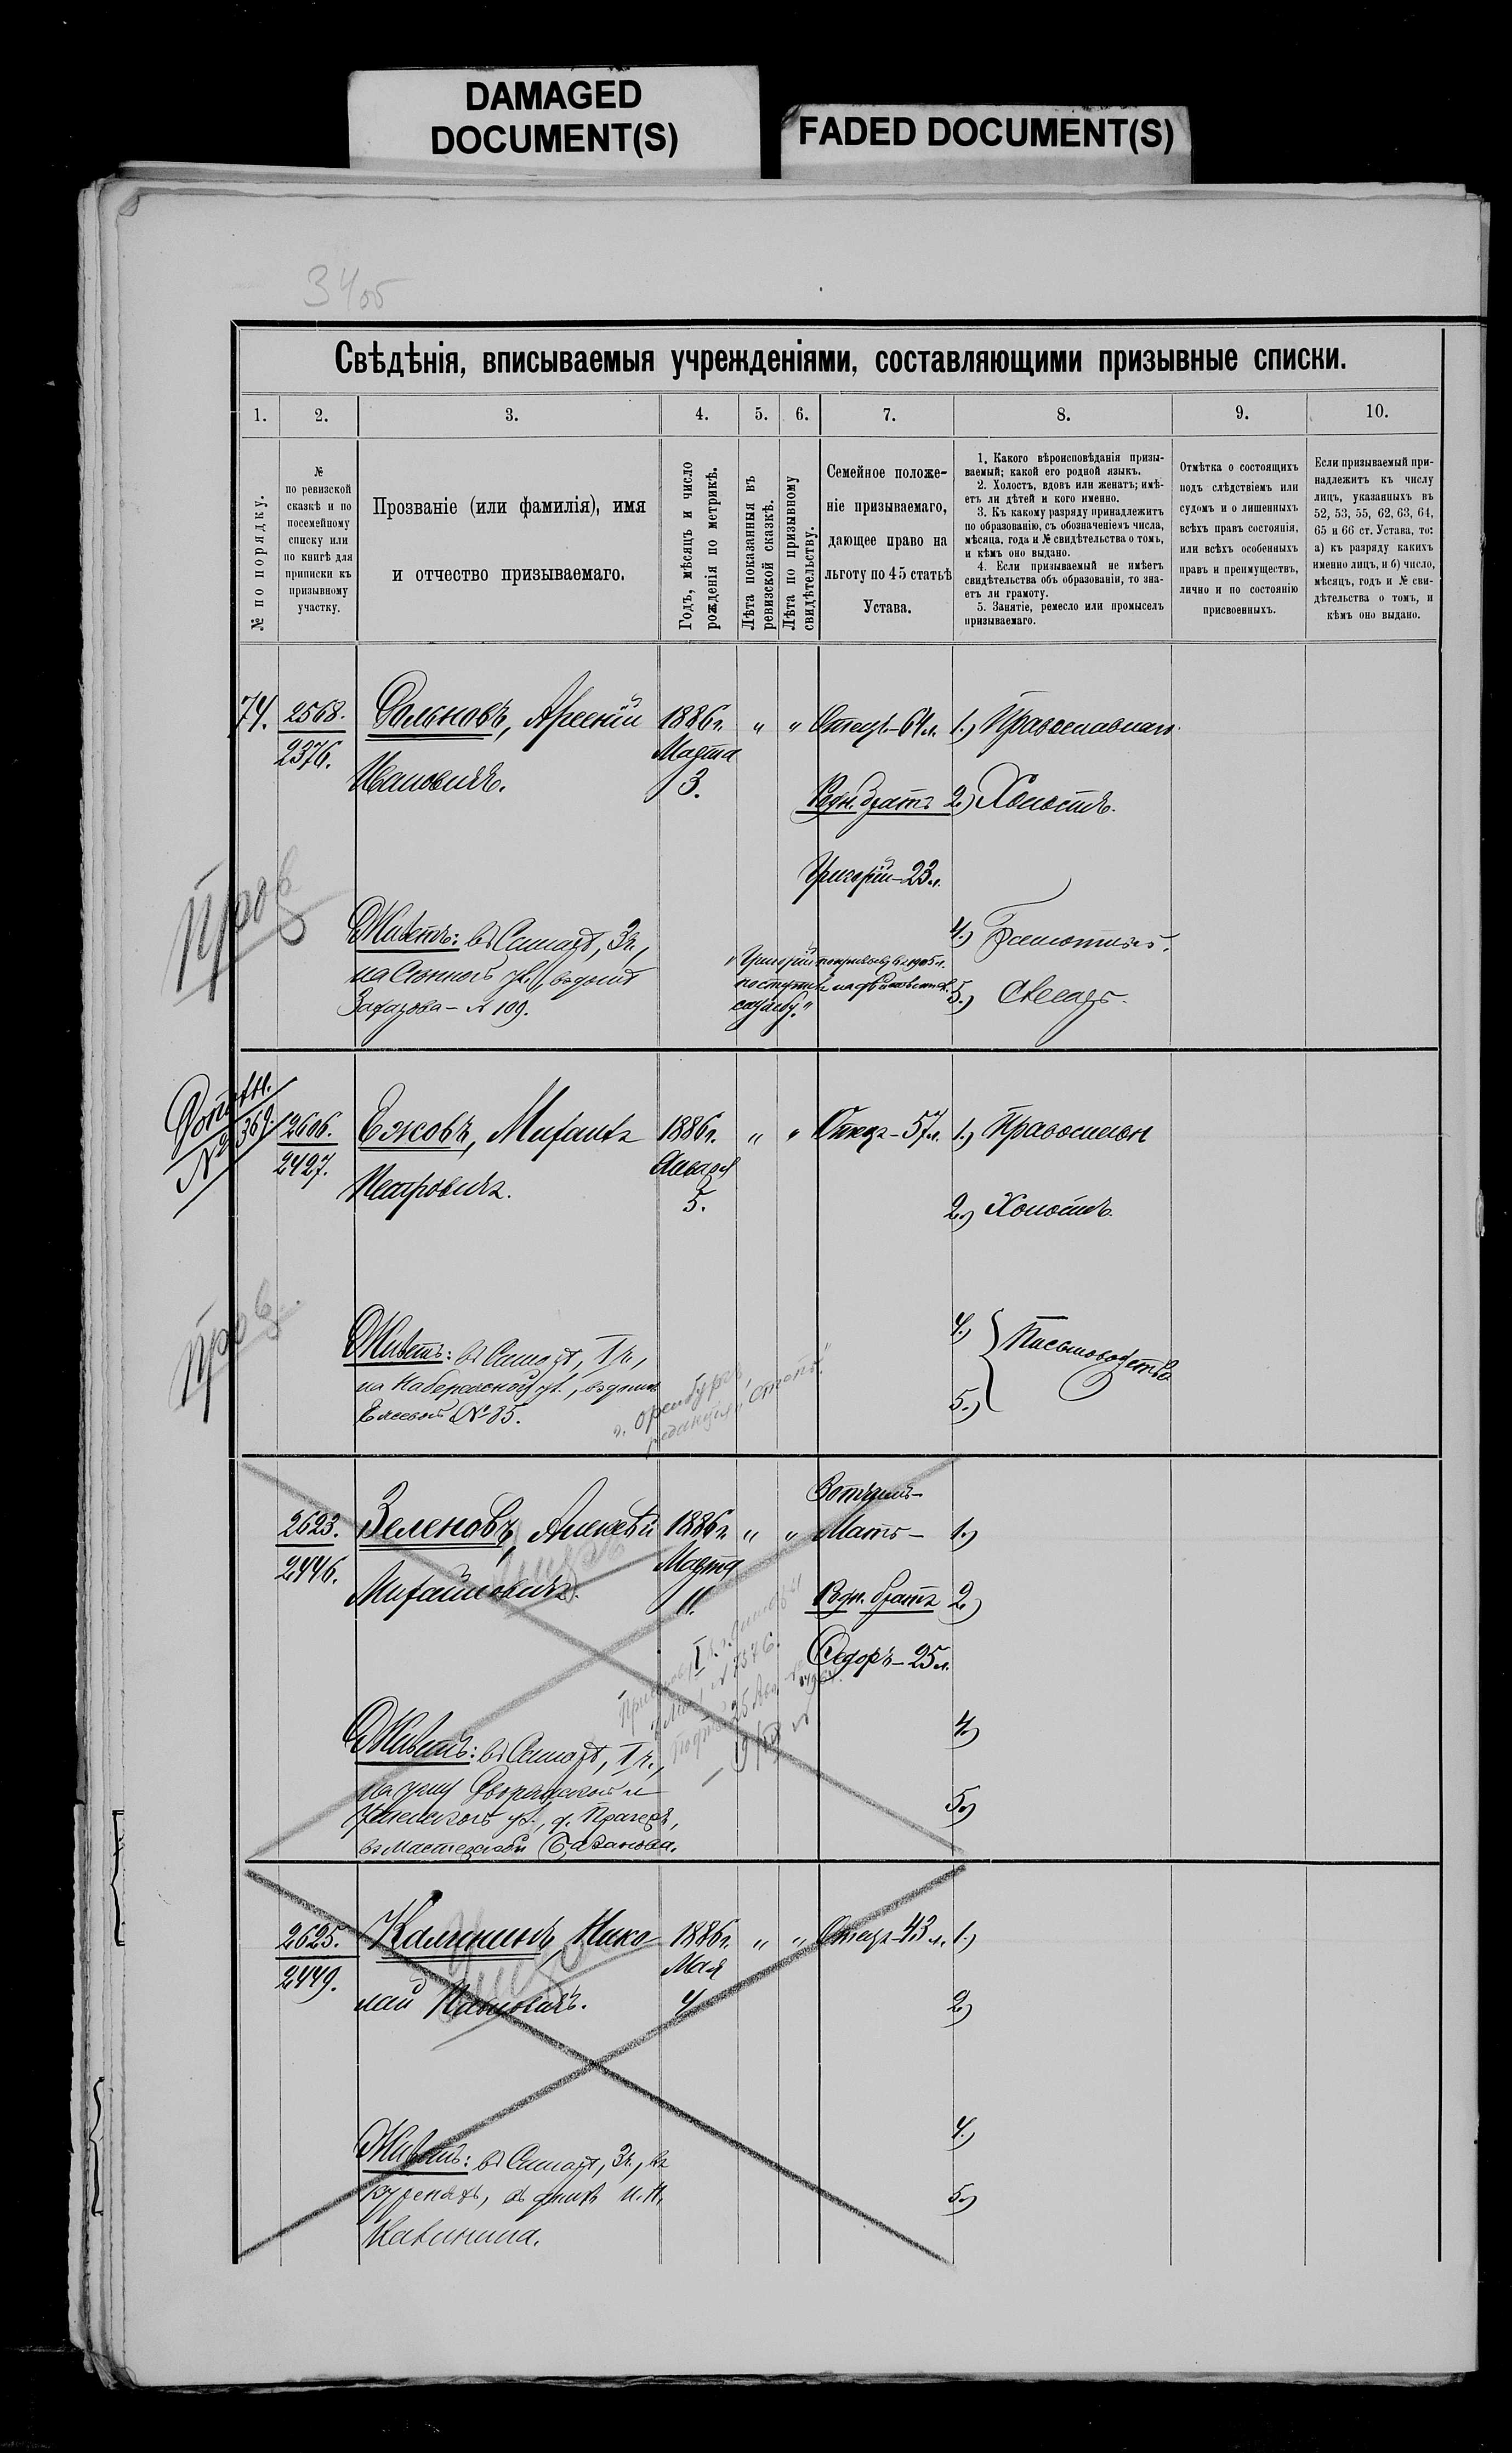 DAMAGED
DOCUMENT(S)
FADED DOCUMENT(S)
34об
Свѣдѣнія, вписываемыя учрежденіями, составляющими призывные списки.
1. 2. 3. 4. 5. 6. 7. 8. 9. 10.
№ по порядку.
№
по ревизской
сказкѣ и по
посемейному
списку или
по книгѣ для
приписки къ
призывному
участку.
Прозваніе (или фамилія), имя
и отчество призываемаго.
Годъ, мѣсяцъ и число
рожденія по метрикѣ.
Лѣта показанныя въ
ревизской сказкѣ.
Лѣта по призывному
свидѣтельству.
Семейное положе-
ніе призываемаго,
дающее право на
льготу по 45 статьѣ
Устава.
1. Какого вѣроисповѣданія призы-
ваемый; какой его родной языкъ.
2. Холостъ, вдовъ или женатъ; имѣ-
етъ ли дѣтей и кого именно.
3. Къ какому разряду принадлежитъ
по образованію, съ обозначеніемъ числа,
мѣсяца, года и № свидѣтельства о томъ,
и кѣмъ оно выдано.
4. Если призываемый не имѣетъ
свидѣтельства объ образованіи, то зна-
етъ ли грамоту.
5. Занятіе, ремесло или промыселъ
призываемаго.
Отмѣтка о состоящихъ
подъ слѣдствіемъ или
судомъ и о лишенныхъ
всѣхъ правъ состоянія,
или всѣхъ особенныхъ
правъ и преимуществъ,
лично и по состоянію
присвоенныхъ.
Если призываемый при-
надлежитъ къ числу
лицъ, указанныхъ въ
52, 53, 55, 62, 63, 64,
65 и 66 ст. Устава, то:
а) къ разряду какихъ
именно лицъ, и б) число,
мѣсяцъ, годъ и № сви-
дѣтельства о томъ, и
кѣмъ оно выдано.
74. 2568. Сольновъ, Арсеній 1886 г. " " Отецъ - 64 л. 1.) Православнаго.
2376. Ивановичъ. Марта 3. Родн. братъ 2.) Холостъ.
Григорій - 23 л.
Живетъ: въ Самарѣ, 3 ч., 4.) Грамотный.
на Сѣнной ул., въ домѣ
Захарова - № 109.
"Григорій по призыву въ 1905 г.
поступилъ на дѣйствит.
службу." 5.) Слесарь.
Пров
№ 369.
2606. Ежовъ, Михаилъ 1886 г. " " Отецъ - 57 л. 1.) Православн
2427. Петровичъ. Января 5. 2.) Холостъ.
Пров.
Живетъ: въ Самарѣ, I ч.,
на Набережной ул., въ домѣ
№ 85.
г. Оренбургъ,
редакція "Степь".
4.) 5.) Письмоводство
2623. Зеленовъ, Алексѣй 1886 г. " " Вотчимъ - Мать - 1.)
2446. Михайловичъ. Марта 11. Родн. братъ 2.)
Ѳедоръ - 25 л.
Живетъ: въ Самарѣ, I ч., 4.)
на углу Дворянской и
ул., д.
въ мастерской Базанова. 5.)
2625. Калининъ, Нико- 1886 г. " " Отецъ - 43 л. 1.)
2449. лай Ивановичъ. Мая 4 2.)
Живетъ: въ Самарѣ, 3 ч., въ 4.)
въ домѣ И. Н. 5.)
Калинина.